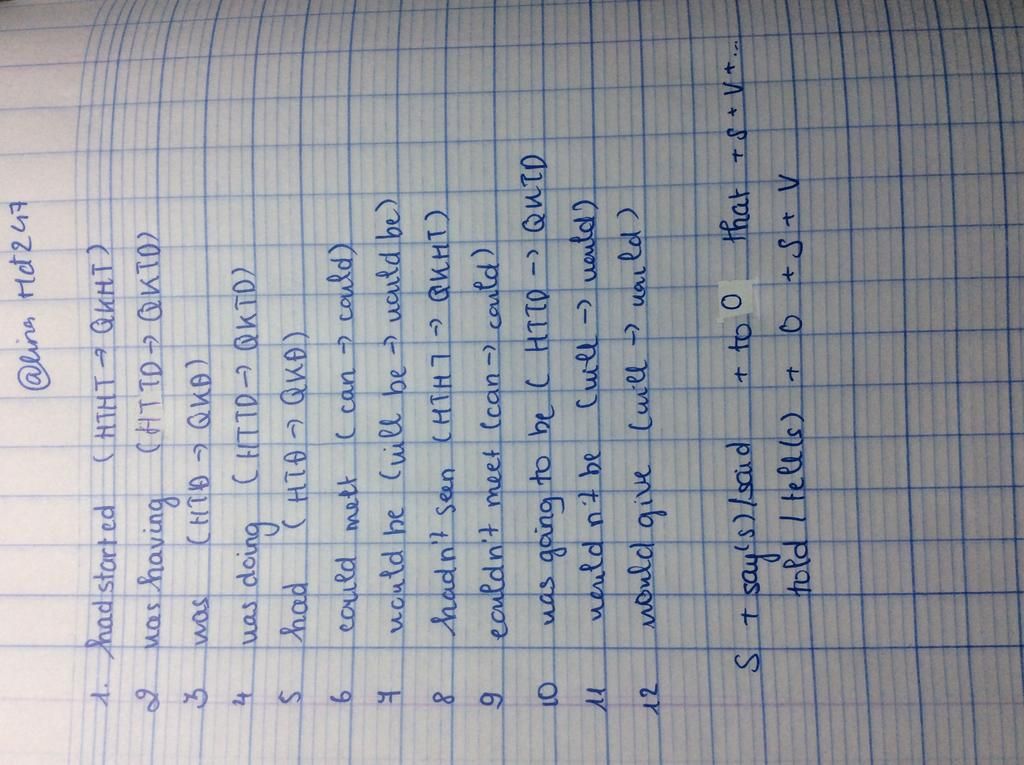 @lina Hd247
1. had started (HTHT → QKHT)
2 was having (HTTD → QKTD)
3 was (HTĐ → QKĐ)
4 was doing (HTTD → QKTD)
5 had (HTĐ → QKĐ)
6 could melt (can → could)
7 would be (will be → would be)
8 hadn't seen (HTHT → QKHT)
9 couldn't meet (can → could)
10 was going to be (HTTD → QKTD
11 would n't be (will → would)
12 would give (will → would)
S + say(s)/said + to O that + S + V + ...
told / tell(s) + O + S + V